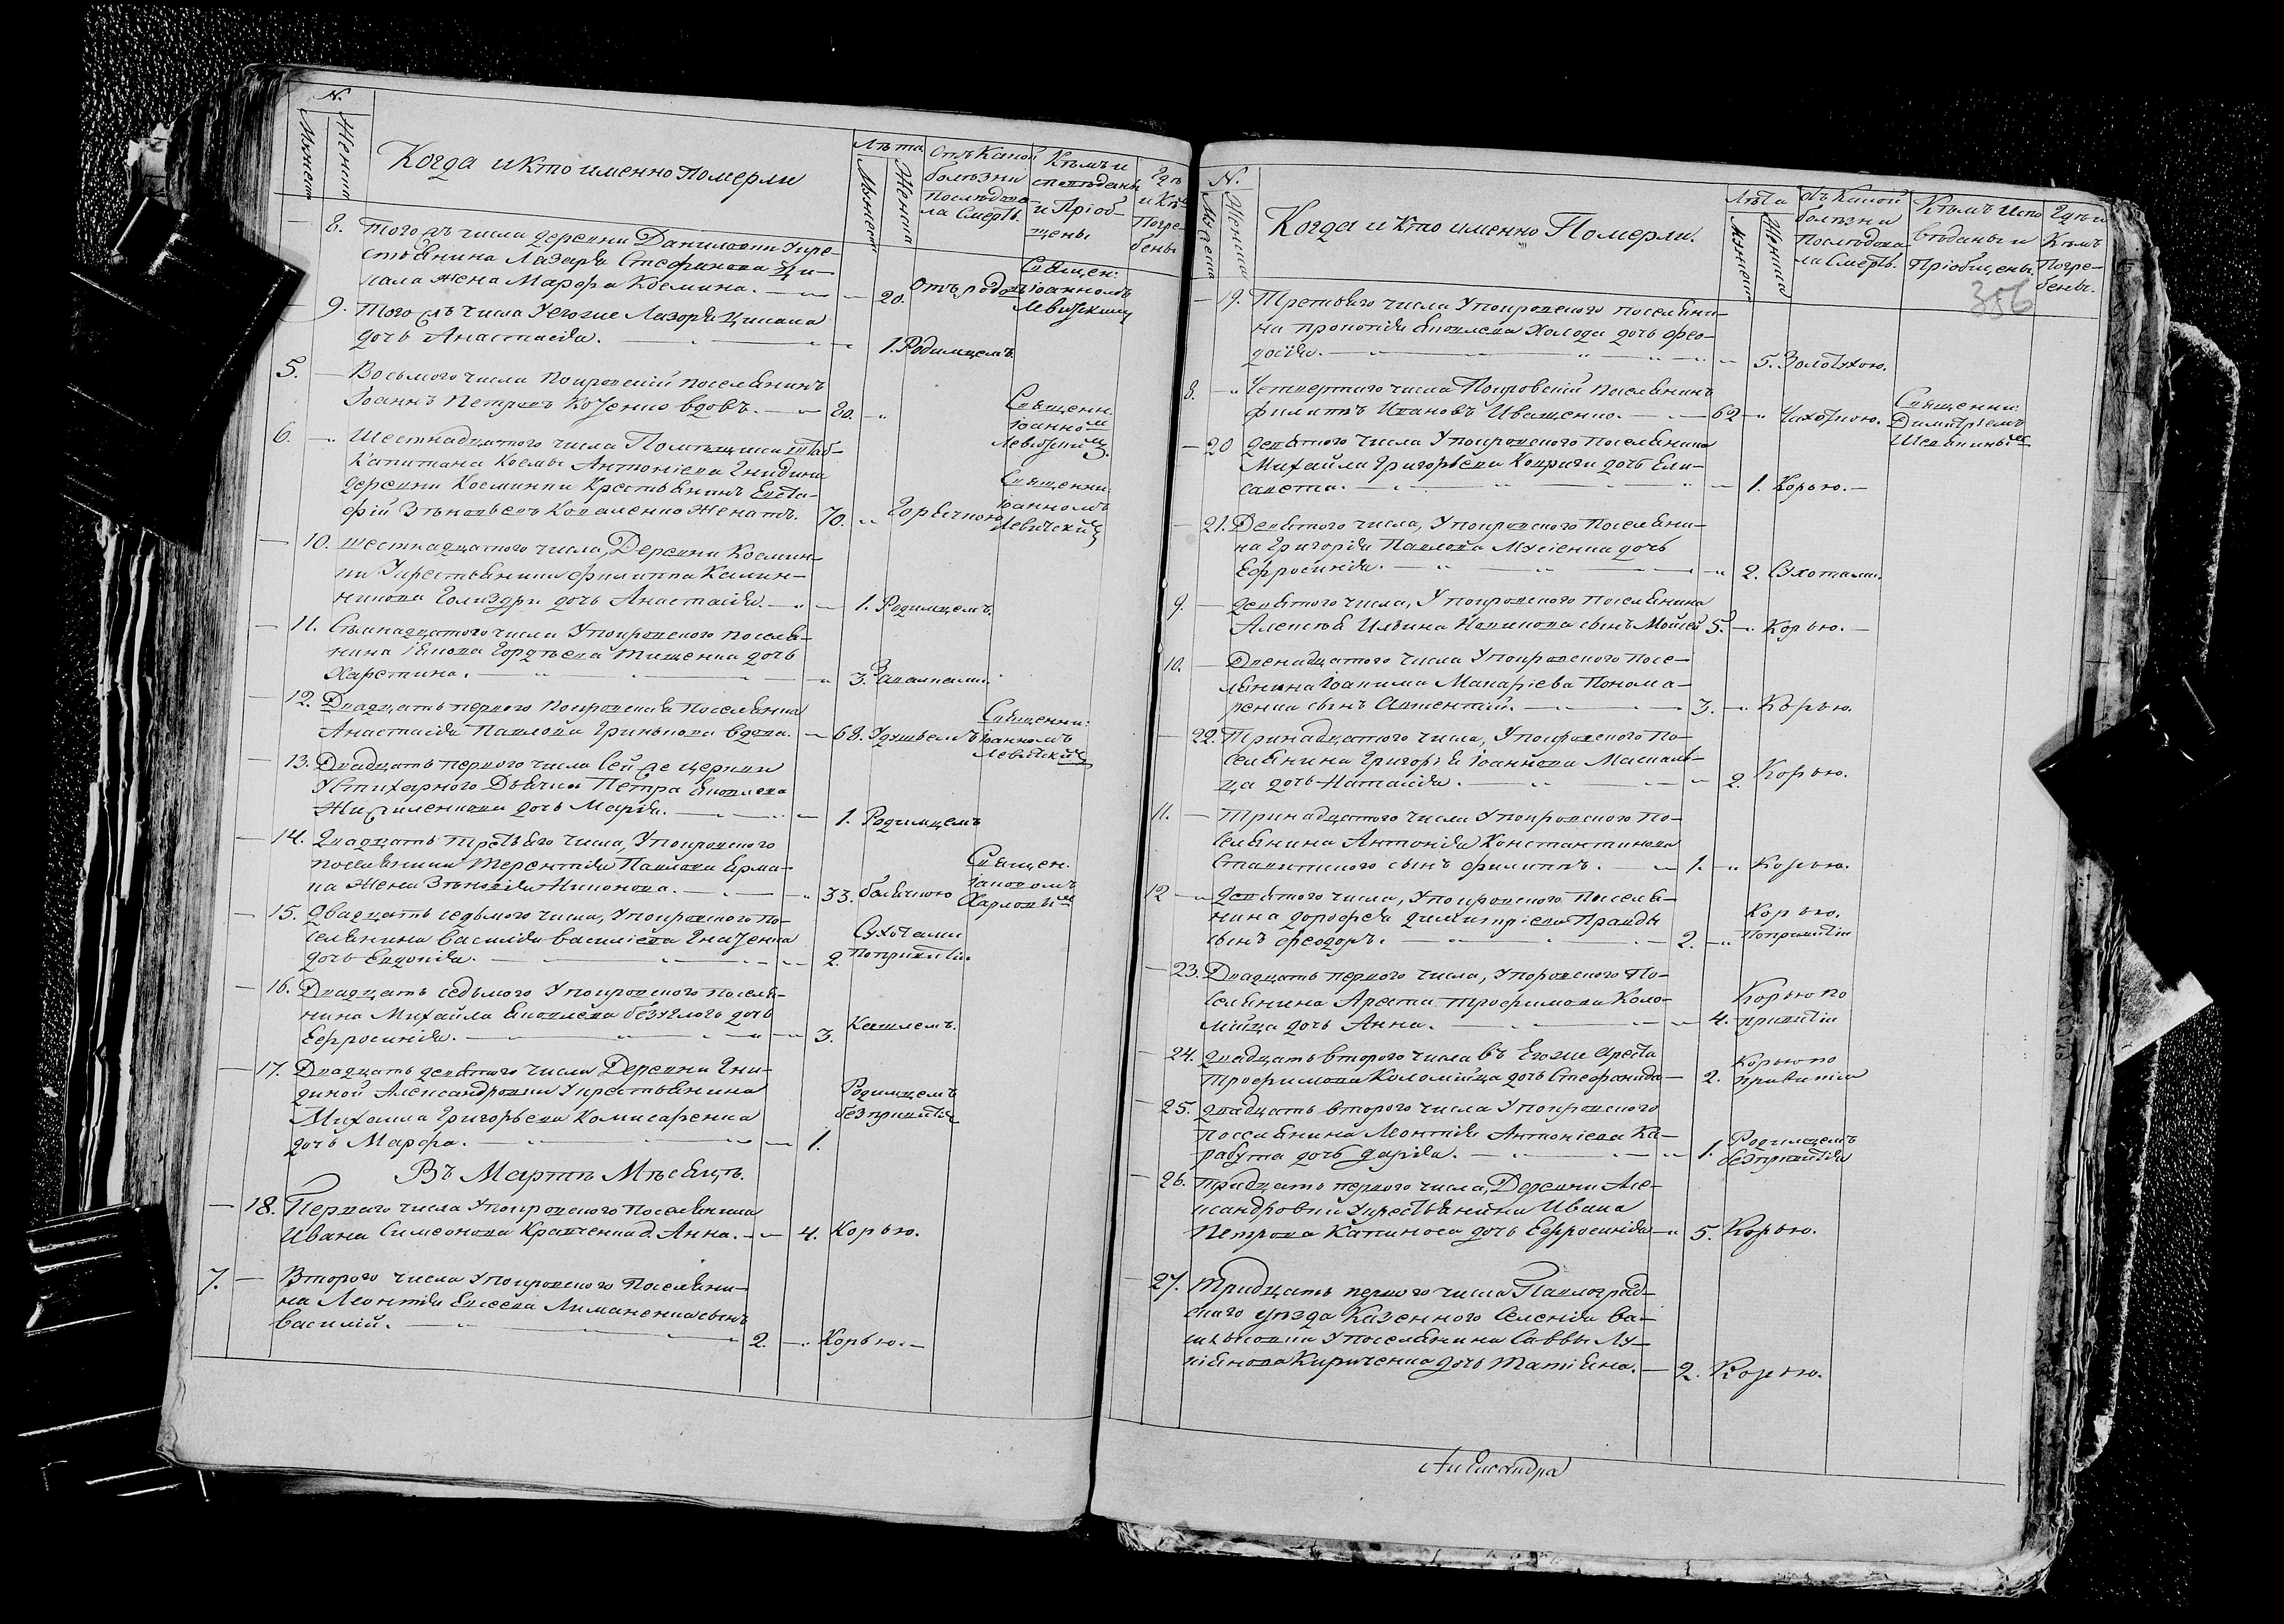 N.
Мужеск
Женск
Когда и кто именно Померли
Лѣта
Мужеск
Женска
Отъ Какой
болѣзни
Послѣдова
ла Смерть.
Кѣмъ и
сповѣданы
и Пріоб-
щены
Гдѣ
и Кѣмъ
Погре-
бены
8. Того жъ числа деревни Даниловки у кре-
стьянина Лазаря Стефанова Ци-
пала жена Марфа Космина. — 20. Отъ родовъ
Священ:
Іоанномъ
Левицкимъ
9. Того жъ числа у егоже Лазаря Ципала
дочь Анастасія. — 1. Родимцемъ.
5. — Восьмого числа Покровскій поселянинъ
Іоаннъ Петровъ Коženко вдовъ. — 80. — „
Священн.
Іоанномъ
Левицкимъ.
6. — „ Шестнадцатого числа Помѣщика штаб-
Капитана Космы Антоніева Гнидина
деревни Косминки Крестьянинъ Евста-
фій Зѣновьевъ Коваленко Женатъ. 70. „ Горячкою
Священни:
Іоанномъ
Левицкимъ
— 10. шестнадцатого числа, Деревни Космин-
ки У крестьянина Филиппа Калин-
никова Голиздри дочь Анастасія. — 1. Родимцемъ.
— 11. Семнадцатого числа У покровского поселя-
нина Іякова Гордѣева Тищенка дочь
Харетина. — „ 3.
— 12. Двадцать первого покровская Поселянка
Анастасія Павлова Гринькова вдова. — 68. Удушьемъ
Священни:
Іоанномъ
Левицкимъ
— 13. Двадцать первого числа Сей же церкви
У Стихарного Дьячка Петра Яковлева
дочь Марія. — 1. Родимцемъ
— 14. Двадцать третьяго числа, У покровского
поселянина Терентія Павлова Ерма-
ка Жена Зѣновія Никонова. — „ 33. болячкою
Священ.
Іаковомъ
Харловымъ
— 15. Двадцать седьмого числа, У покровского по-
селянина Василія Василіева Гнаženка
дочь Евдокія. — 2.
Сухотами
По привитіи.
— 16. Двадцать седьмого У покровского поселя-
нина Михайла Яковлева безуглого дочь
Ефросинія. — 3. Кашлемъ.
— 17. Двадцать девятого числа Деревни Гни-
диной Александровки У крестьянина
Михаила Григорьева Комисаренка
дочь Марфа. — 1.
Родимцемъ
без привитія
Въ Мартѣ Мѣсяцѣ.
— 18. Перваго числа У покровского Поселянина
Ивана Симеонова Кравченка д. Анна. — 4. Корью.
7. — Второго числа У покровского Поселяни-
на Леонтія Евсеева Лиманенка сынъ
Василій. — „ 2. — Корью. —
N.
Мужеска
Женска
Когда и кто именно Померли.
Лѣта
Мужеск
Женска
отъ Какой
болѣзни
Послѣдова
ла Смерть.
Кѣмъ Испо
вѣданы и
Пріобщены.
Гдѣ и
Кѣмъ
Погре-
бены.
356
— 19. Третьяго числа У покровского поселяни-
на Прокопія Яковлева Холода дочь Фео-
досія. — 5. Золотухою.
8. — „ Четвертаго числа Покровскій Поселянинъ
Филиппъ Ивановъ Иващенко. — 62 — „ Чахоткою.
Священни:
Димитріемъ
Шевкинымъ
— 20 девятого числа У покровского Поселянина
Михайла Григорьева Коврыги дочь Ели-
савета. — 1. Корью. —
— 21. Девятого числа, У покровского Поселяни-
на Григорія Павлова Мусіенка дочь
Ефросинія. — „ 2. Сухотами.
9. — девятого числа, У покровского Поселянина
Алексѣя Ильина Новикова сынъ Моѵсей 5. — Корью. —
10. — Двенадцатого числа У покровского Посе-
лянина Іоакима Макаріева Понома-
ренка сынъ Авксентій. — 3. — Корью.
— 22. Тринадцатого числа, У покровского По-
селянина Григорія Іоаннова Москаль-
ца дочь Наталія. — „ 2. Корью.
11. — Тринадцатого числа У покровского По-
селянина Антонія Константинова
Ставитского сынъ Филиппъ. — 1. — „ Корью.
12 — „ девятого числа, У покровского Поселя-
нина Дорофея Димитріева Правды
сынъ Феодоръ. — 2. — „
Корью.
По привитіи
— 23. Двадцать первого числа, У покровского По-
селянина Арефы Трофимова Коло-
мійца дочь Анна. — 4.
Корью по
привитіи
— 24. Двадцать второго числа въ Егоже Арефы
Трофимова Коломійца дочь Стефанида — 2.
Корью по
привитіи
— 25. Двадцать второго числа У покровского
Поселянина Леонтія Антоніева Ка-
рабута дочь Дарія. — „ 1.
Родимцемъ
без привитія
— 26. Тридцать первого числа, Деревни Але-
ксандровки У крестьянина Ивана
Петрова Капиноса дочь Ефросинія — „ 5. Корью.
— 27. Тридцать первого числа Павлоград-
скаго уѣзда Казенного Селенія Ва-
сильковки У поселянина Саввы Лу-
кіянова Кириченка дочь Татіяна. — 2. Корью.
Александра